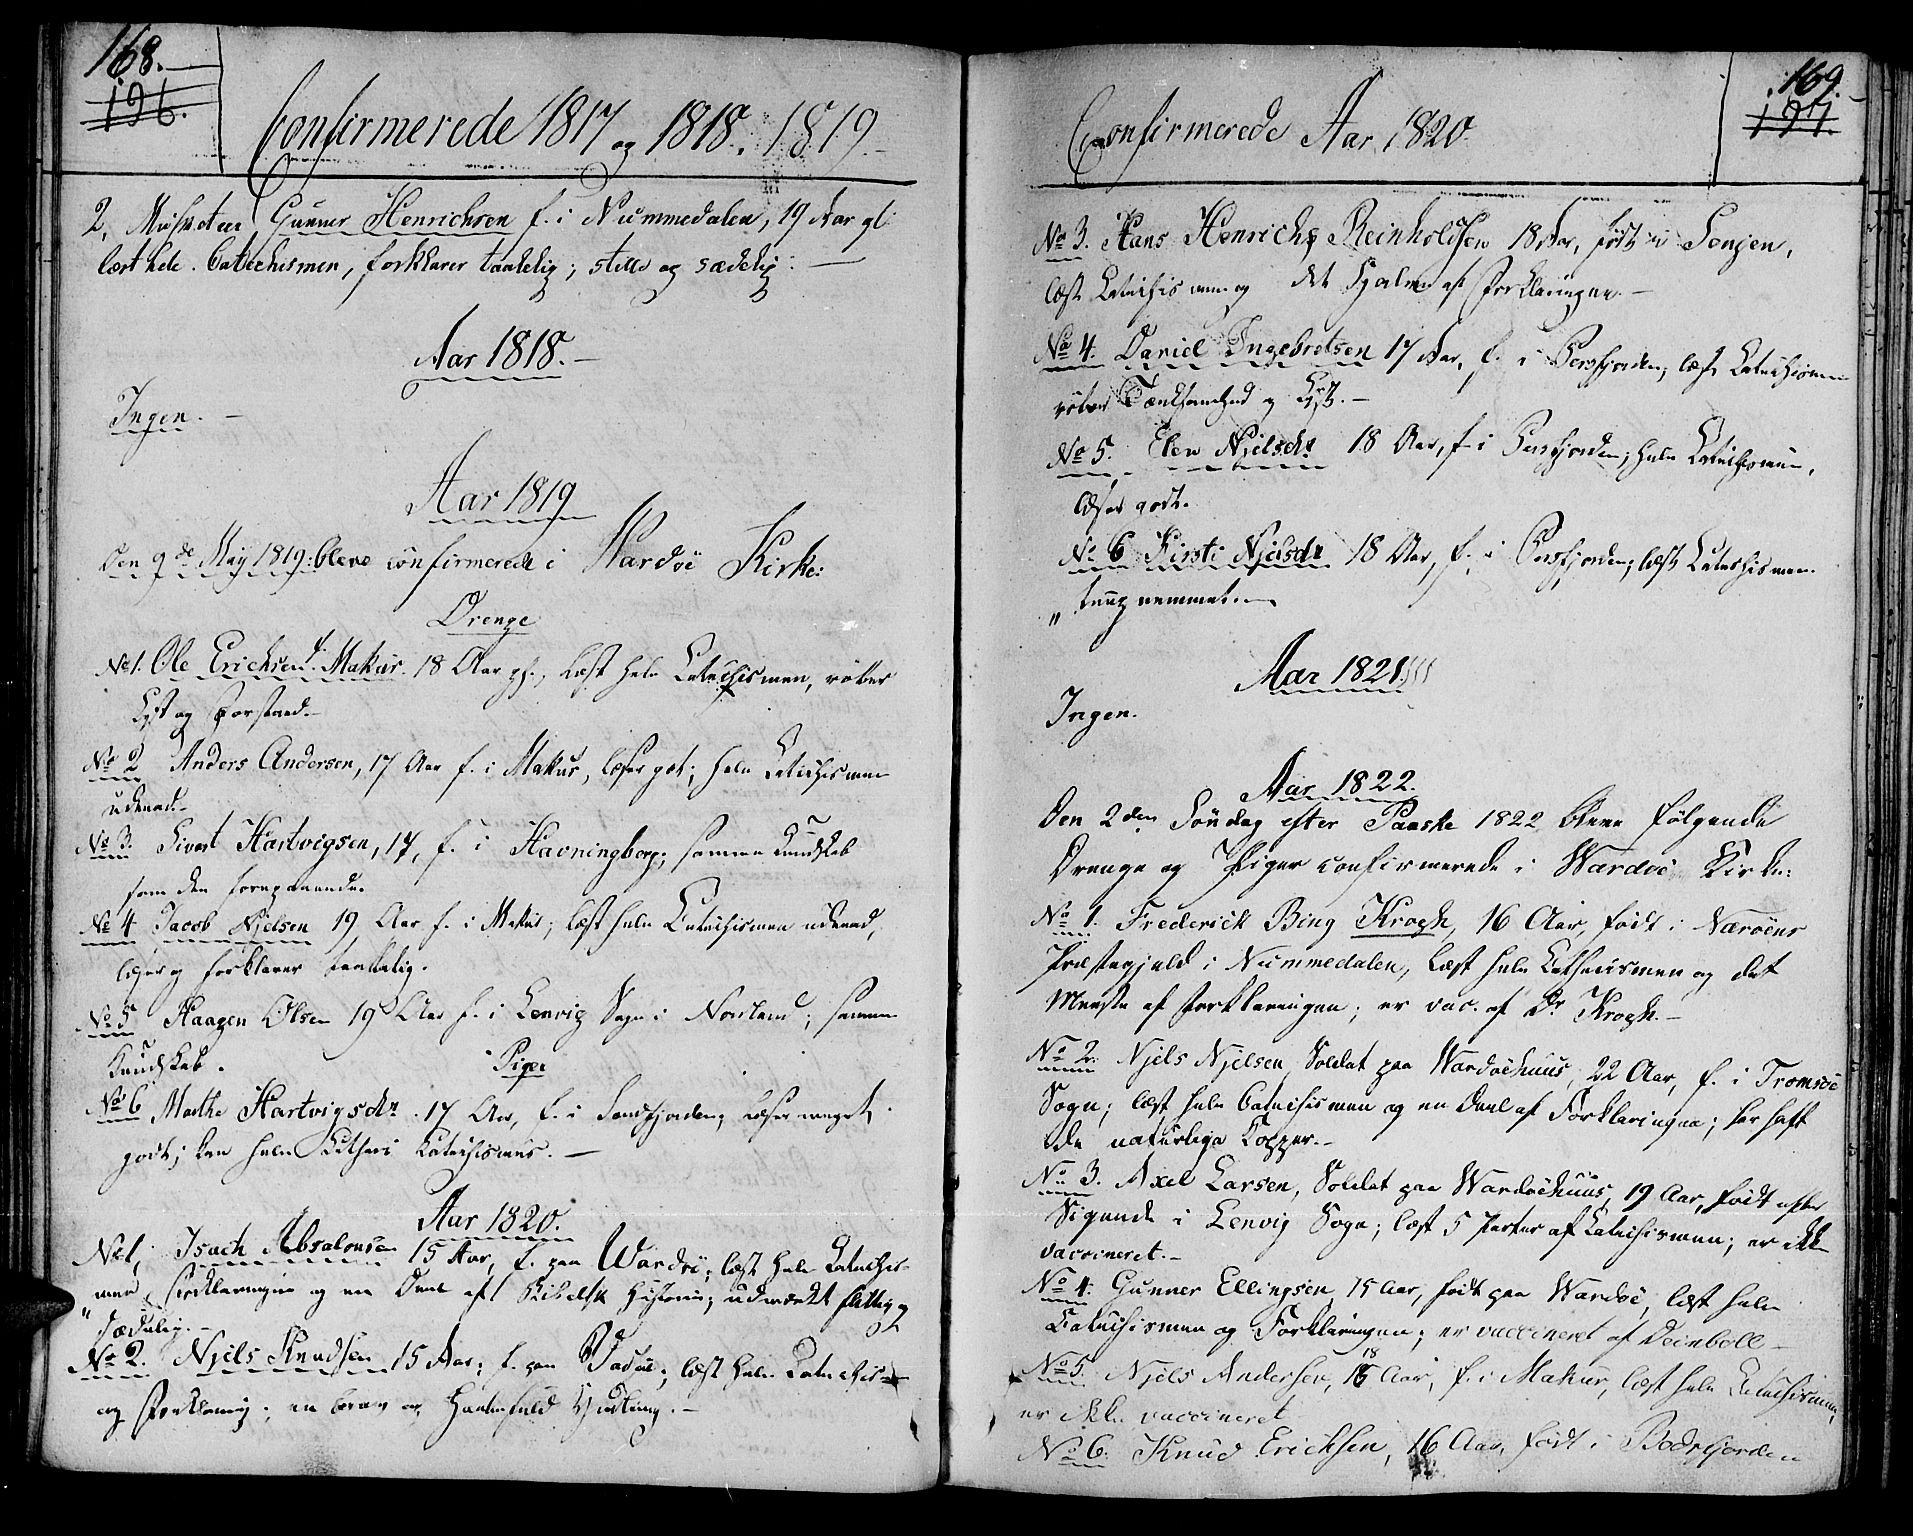 168.
196.
Confirmerede 1817 og 1818. 1819.
2, Musqueteer Gunner Henrichsen f. i Nummedalen, 19 Aar gl.
læst hele Catechismen, forklarer taalelig; stille og sædelig.
Aar 1818.
Ingen.
Aar 1819
Den 9de May 1819: bleve confirmerede i Wardöe Kirke:
Drenge
No 1. Ole Erichsen Makur 18 Aar gl., læst hele Catechismen, röber
Lyst og Forstand.
No 2 Anders Andersen, 17 Aar f. i Makur, læser got; hele Catechismen
udenad.
No 3. Sivert Hartvigsen, 17, f. i Havningberg; samme Kundskab
som den foregaaende.
No 4 Jacob Njelsen 19 Aar f. i Makur; læst hele Catechismen udenad,
læser og forklarer taalelig.
No 5 Haagen Olsen 19 Aar f. i Lenvig Sogn i Norland; samme
Kundskab.
Piger
No 6 Marthe Hartvigsdr 17 Aar, f. i Sandfjorden; læser meget
godt; kan hele Lutheri Catechismus.
Aar 1820.
No 1, Isach Absalonsen 15 Aar, f. paa Wardöe; læst hele Catechis-
men, Forklaringen og en Deel af Bibelsk Historie; udmærket flittig og
sædelig.
No 2. Njels Knudsen 15 Aar; f. paa Vadsöe; læst hele Catechis-
og Forklaring; en brav og haabefuld Yndling.
169.
197.
Confirmerede Aar 1820.
No 3. Hans Henrich Reinholdsen 18 Aar, födt i Senjen,
læst Catechismen og det Halve af Forklaringen.
No 4. Daniel Ingebretsen 17 Aar, f. i Persfjorden; læst Catechismen
röber Tænksomhed og Lyst.
No 5. Elen Njelsdr 18 Aar, f. i Persfjorden; hele Catechismen,
læser godt.
No 6 Kirsti Njelsdr 18 Aar, f. i Persfjorden; læst Catechismen
tungnemmet.
Aar 1821
Ingen.
Aar 1822.
Den 2den Söndag efter Paaske 1822 bleve fölgende
Drenge og Piger confirmerede i Wardöe Kirke:
No 1. Frederich Bing Krogh, 16 Aar, födt i Næröens
Præstegjeld i Nummedalen, læst hele Cathecismen og det
Meeste af Forklaringen; er vac. af Dr Krogh.
No 2. Njels Njelsen, Soldat paa Wardöehuus, 22 Aar, f. i Tromsöe
Sogn; læst hele Catechismen og en Deel af Forklaringen; har haft
de naturlige Kopper.
No 3. Axel Larsen, Soldat paa Wardöehuus, 19 Aar, födt efter
Sigende i Lenvig Sogn; læst 5 Parter af Catechismen; er ikke
vaccineret.
No 4. Gunner Ellingsen, 15 Aar, födt paa Wardöe, læst hele
Catechismen og Forklaringen; er vaccineret af Deinboll
No 5. Njels Andersen, 18 Aar, f. i Makur, læst hele Catechismen,
er ikke vaccineret
No 6. Knud Erichsen, 16 Aar, födt i Baadsfjorden